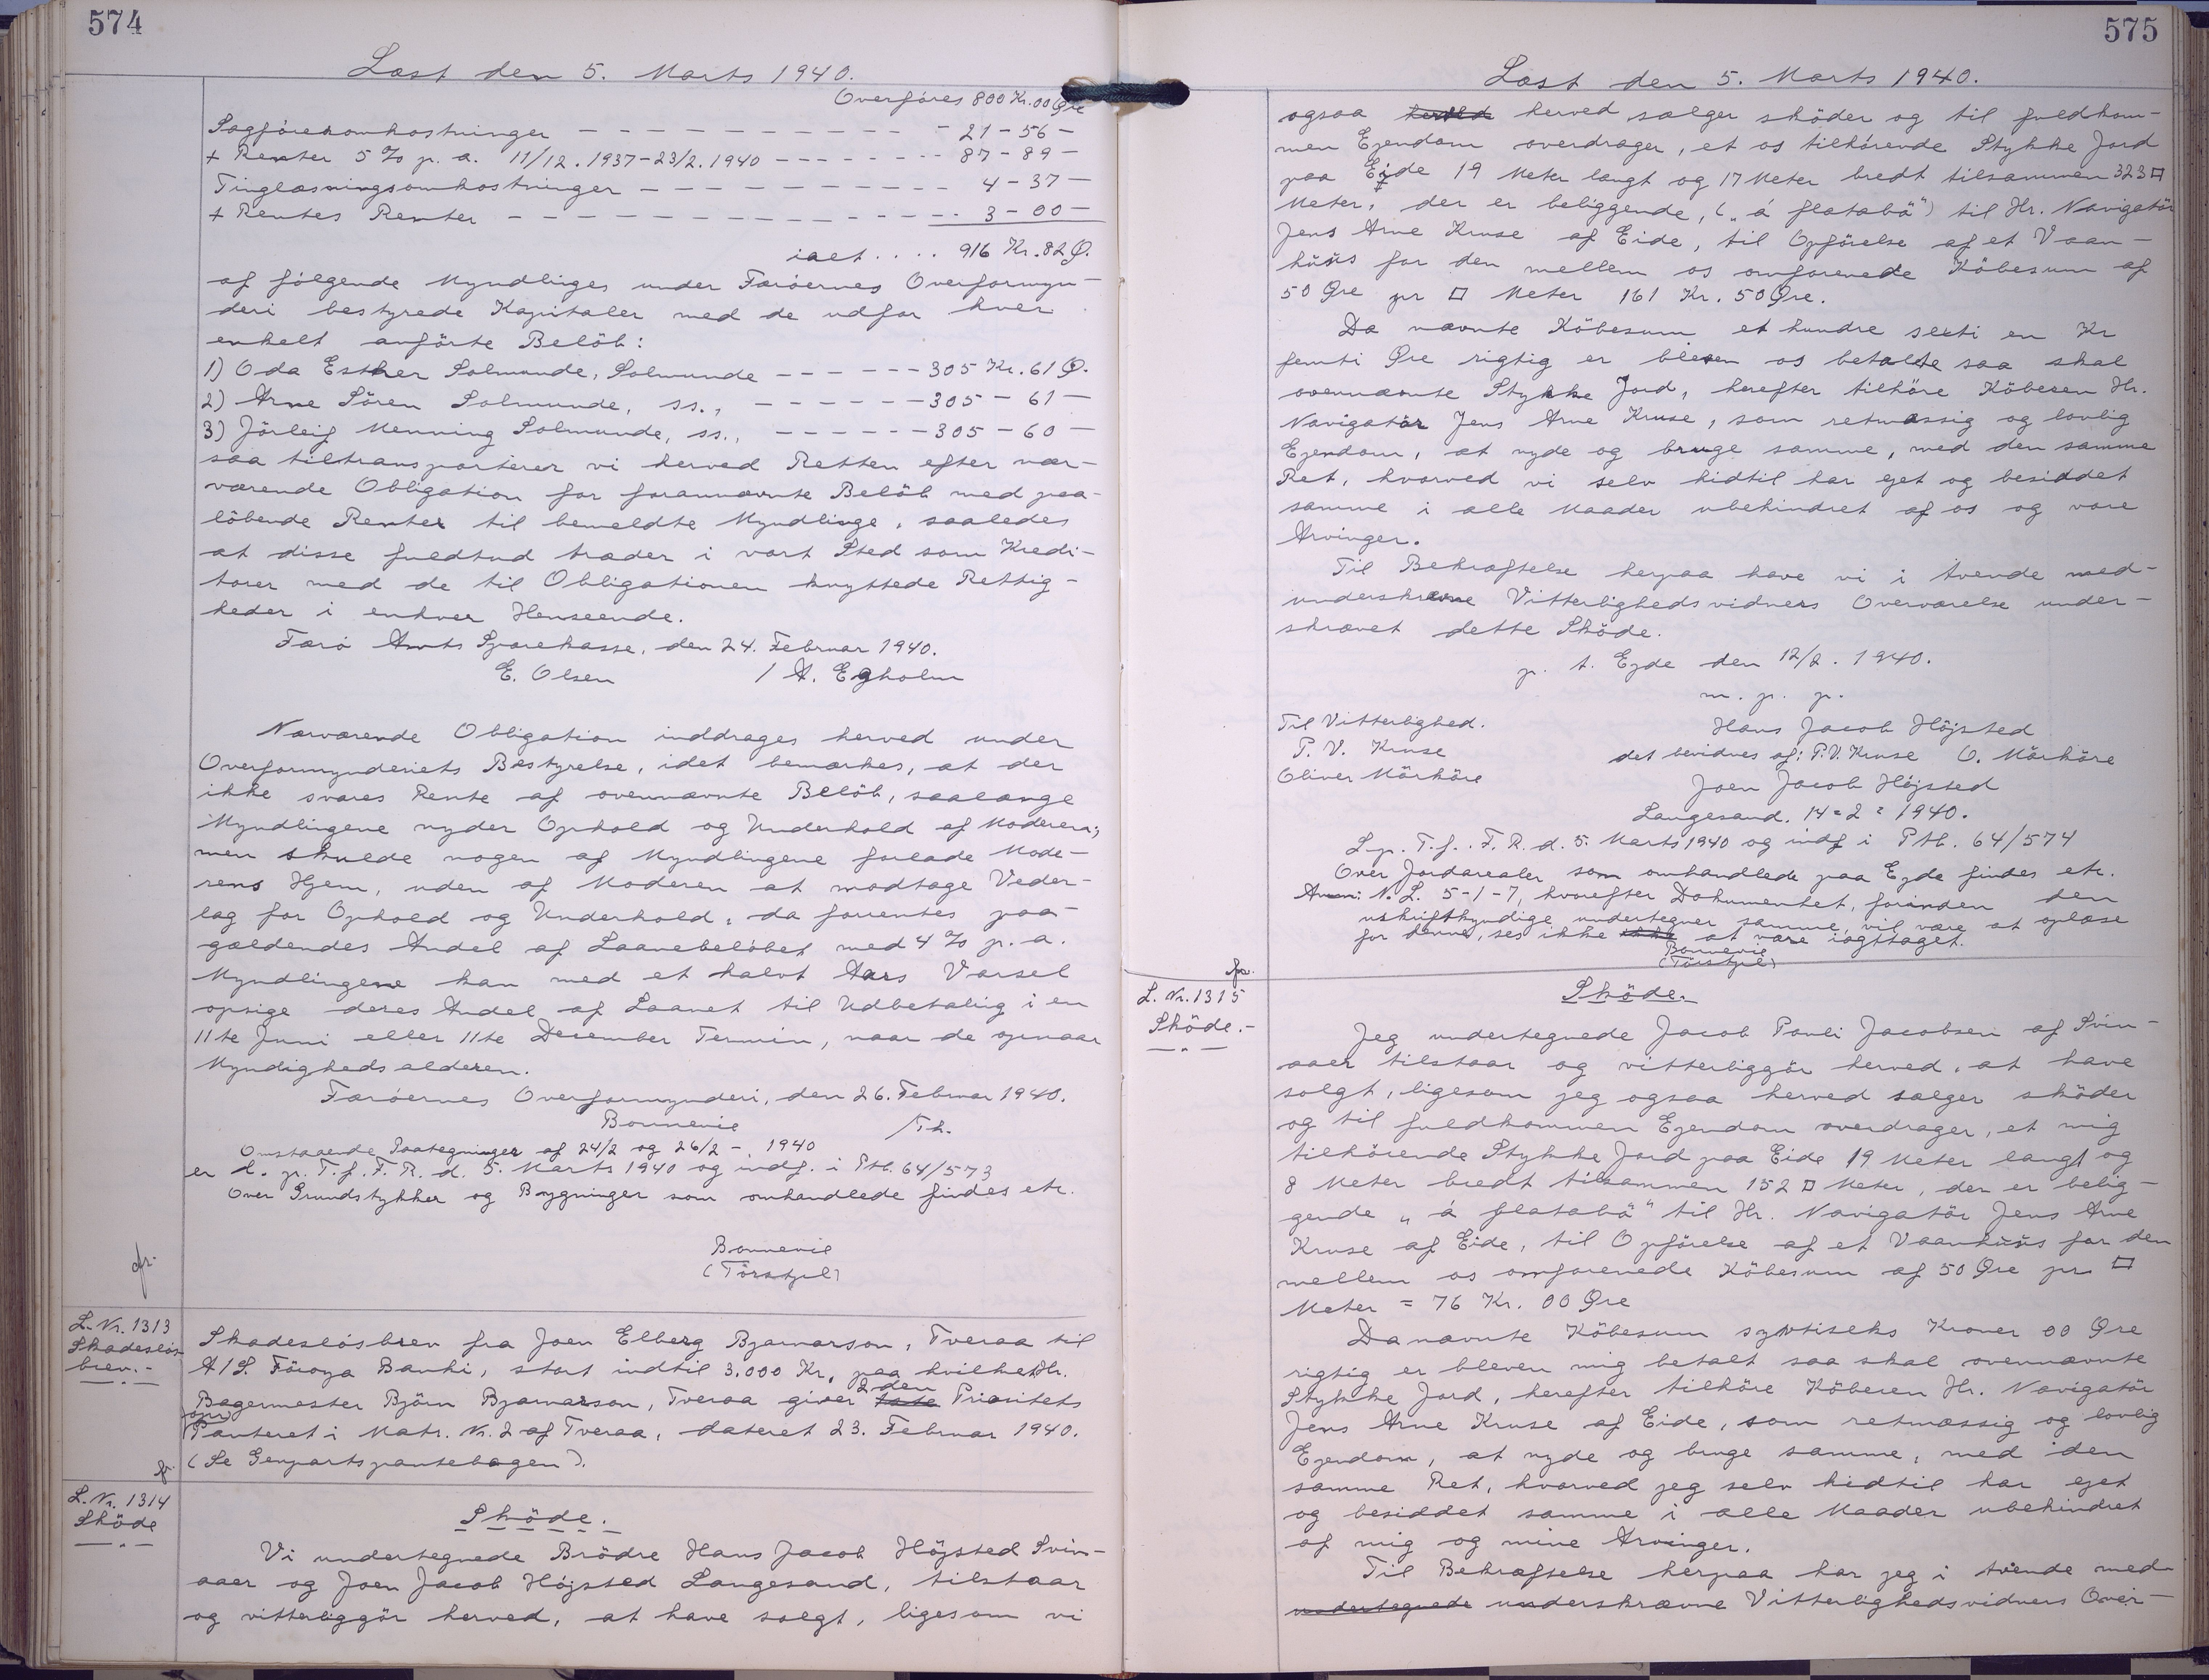 574
Læst den 5. Marts 1940.
Overføres 800 Kr. 00 Øre
Sagföreromkostninger - - - - - - - - - - - 21 - 56 -
+ Renter 5 % p. a. 11/12. 1937 - 23/2. 1940 - - - - - - - 87 - 89 -
Tinglæsningsomkostninger - - - - - - - - - - 4 - 37 -
+ Rentes Renter - - - - - - - - - - - - - - 3 - 00 -
ialt . . . . 916 Kr. 82 Ø.
af følgende Myndlinges under Færøernes Overformyn-
deri bestyrede Kapitaler med de udfor hver
enkelt anförte Belöb:
1) Oda Esther Solmunde, Solmunde - - - - - - 305 Kr. 61 Ø.
2) Arne Sören Solmunde, ss., - - - - - - 305 - 61 -
3) Jörleif Henning Solmunde, ss., - - - - - - 305 - 60 -
saa tiltransporterer vi herved Retten efter nær-
værende Obligation for forannævnte Belöb med paa-
löbende Renter til bemeldte Myndlinge, saaledes
at disse fuldtud træder i vort Sted som Kredi-
torer med de til Obligationen knyttede Rettig-
heder i enhver Henseende.
Færö Amts Sparekasse, den 24. Februar 1940.
E. Olsen / A. Egholm
Nærværende Obligation inddrages herved under
Overformynderiets Bestyrelse, idet bemærkes, at der
ikke svares Rente af ovennævnte Belöb, saalænge
Myndlingene nyder Ophold og Underhold af Moderen;
men skulde nogen af Myndlingene forlade Mode-
rens Hjem, uden af Moderen at modtage Veder-
lag for Ophold og Underhold, da forrentes paa-
gældendes Andel af Laanebeløbet med 4 % p. a.
Myndlingene kan med et halvt Aars Varsel
opsige deres Andel af Laanet til Udbetaling i en
11te Juni eller 11te December Termin, naar de opnaar
Myndighedsalderen.
Færöernes Overformynderi, den 26. Februar 1940.
Bonnevie /Th.
Omstaaende Paategninger af 24/2 og 26/2 - 1940
er l. p. T. f. F. R. d. 5. Marts 1940 og indf. i Ptb. 64/573
Over Grundstykker og Bygninger som omhandlede findes etc.
Bonnevie
(Törstzel)
L. Nr. 1313
Skadeslös-
brev.-
Skadeslösbrev fra Joen Elberg Bjarnarson, Tveraa til
A/S. Föroya Banki, stort indtil 3.000 Kr. paa hvilket Hr.
2den
Bagermester Björn Bjarnarson, Tveraa giver 1ste Prioritets
opr.
Panteret i Matr. Nr. 2 af Tveraa, dateret 23. Februar 1940.
(Se Genpartspantebogen).
L. Nr. 1314
Sköde
Sköde.
Vi undertegnede Brödre Hans Jacob Höjsted Svin-
aaer og Joen Jacob Höjsted Langesand, tilstaar
og vitterliggör herved, at have solgt, ligesom vi
575
Læst den 5. Marts 1940.
ogsaa herved herved sælger sköder og til fuldkom-
men Ejendom overdrager, et os tilhörende Stykke Jord
paa Eide 19 Meter langt og 17 Meter bredt tilsammen 323 □
Meter, der er beliggende, („á flatabö“) til Hr. Navigatör
Jens Arne Kruse af Eide, til Opförelse af et Vaan-
hüüs for den mellem os omforenede Köbesum af
50 Øre pr □ Meter 161 Kr. 50 Øre.
Da nævnte Köbesum et hundre seksti en Kr
femti Øre rigtig er bleven os betalte saa skal
ovennævnte Stykke Jord, herefter tilhöre Köberen Hr.
Navigatör Jens Arne Kruse, som retmæssig og lovlig
Ejendom, at nyde og bruge samme, med den samme
Ret, hvorved vi selv hidtil har ejet og besiddet
samme i alle Maader ubehindret af os og vore
Arvinger.
Til Bekræftelse herpaa have vi i tvende med-
underskrevne Vitterlighedsvidners Overværelse under-
skrevet dette Sköde.
p. t. Ejde den 12/2. 1940.
m. p. p.
Til Vitterlighed. Hans Jacob Höjsted
P. V. Kruse det bevidnes af: P. V. Kruse O. Mörköre
Oliver Mörköre Joen Jacob Höjsted
Langesand. 14=2=1940.
L. p. T. f. F. R. d. 5. Marts 1940 og indf i Ptb. 64/574
Over Jordarealer som omhandlede paa Ejde findes etc.
Anm: N. L. 5-1-7, hvorefter Dokumentet, forinden den
uskriftkyndige undertegner samme, vil være at oplæse
for denne, ses ikke ikke at være iagttaget.
Bonnevie
(Törstzel)
L. Nr. 1315
Sköde.-
Sköde.
Jeg undertegnede Jacob Pauli Jacobsen af Svin-
aaer tilstaar og vitterliggör herved, at have
solgt, ligesom jeg ogsaa herved sælger sköder
og til fuldkommen Ejendom overdrager, et mig
tilhörende Stykke Jord paa Eide 19 Meter langt og
8 Meter bredt tilsammen 152 □ Meter, der er belig-
gende „á flatabö“ til Hr. Navigatör Jens Arne
Kruse af Eide, til Opförelse af et Vaanhüüs for den
mellem os omforenede Köbesum af 50 Øre pr □
Meter = 76 Kr. 00 Øre
Da nævnte Köbesum syvtiseks Kroner 00 Øre
rigtig er bleven mig betalt saa skal ovennævnte
Stykke Jord, herefter tilhöre Köberen Hr. Navigatör
Jens Arne Kruse af Eide, som retmæssig og lovlig
Ejendom, at nyde og bruge samme, med den
samme Ret, hvorved jeg selv hidtil har ejet
og besiddet samme i alle Maader ubehindret
af mig og mine Arvinger.
Til Bekræftelse herpaa har jeg i tvende med-
undertegnede underskrævne Vitterlighedsvidners Over-